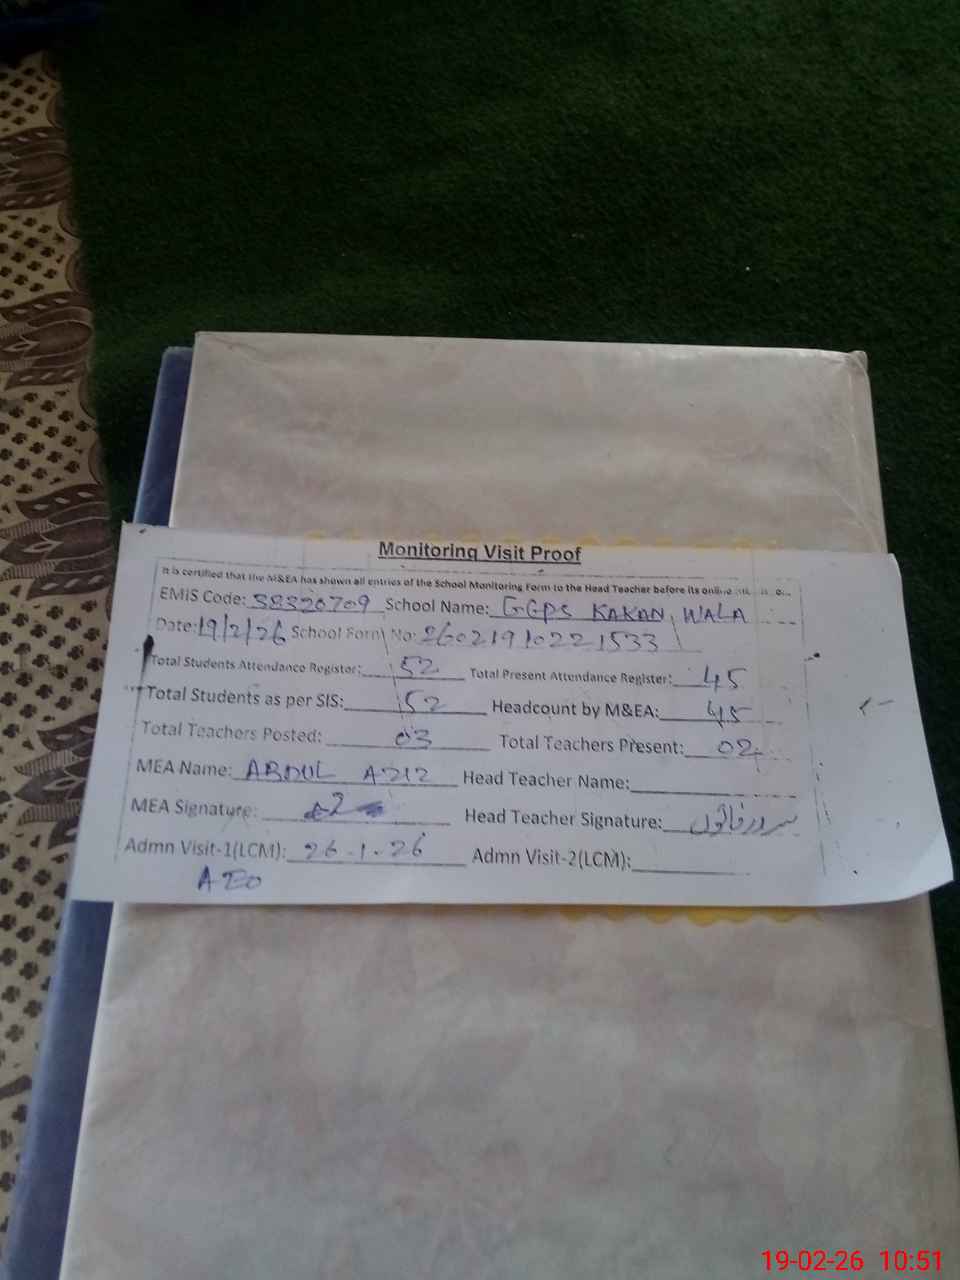 Monitoring Visit Proof
It is certified that the M&EA has shown all entries of the School Monitoring Form to the Head Teacher before its online
EMIS Code: 38320709 School Name: GGPS KAKAN WALA
Date: 19/2/26 School Form No: 26021910221533
Total Students Attendance Register: 52 Total Present Attendance Register: 45
Total Students as per SIS: 52 Headcount by M&EA: 45
Total Teachers Posted: 03 Total Teachers Present: 02
MEA Name: ABDUL AZIZ Head Teacher Name:
MEA Signature: Head Teacher Signature:
Admn Visit-1(LCM): 26-1-26 Admn Visit-2(LCM):
AEO
19-02-26 10:51